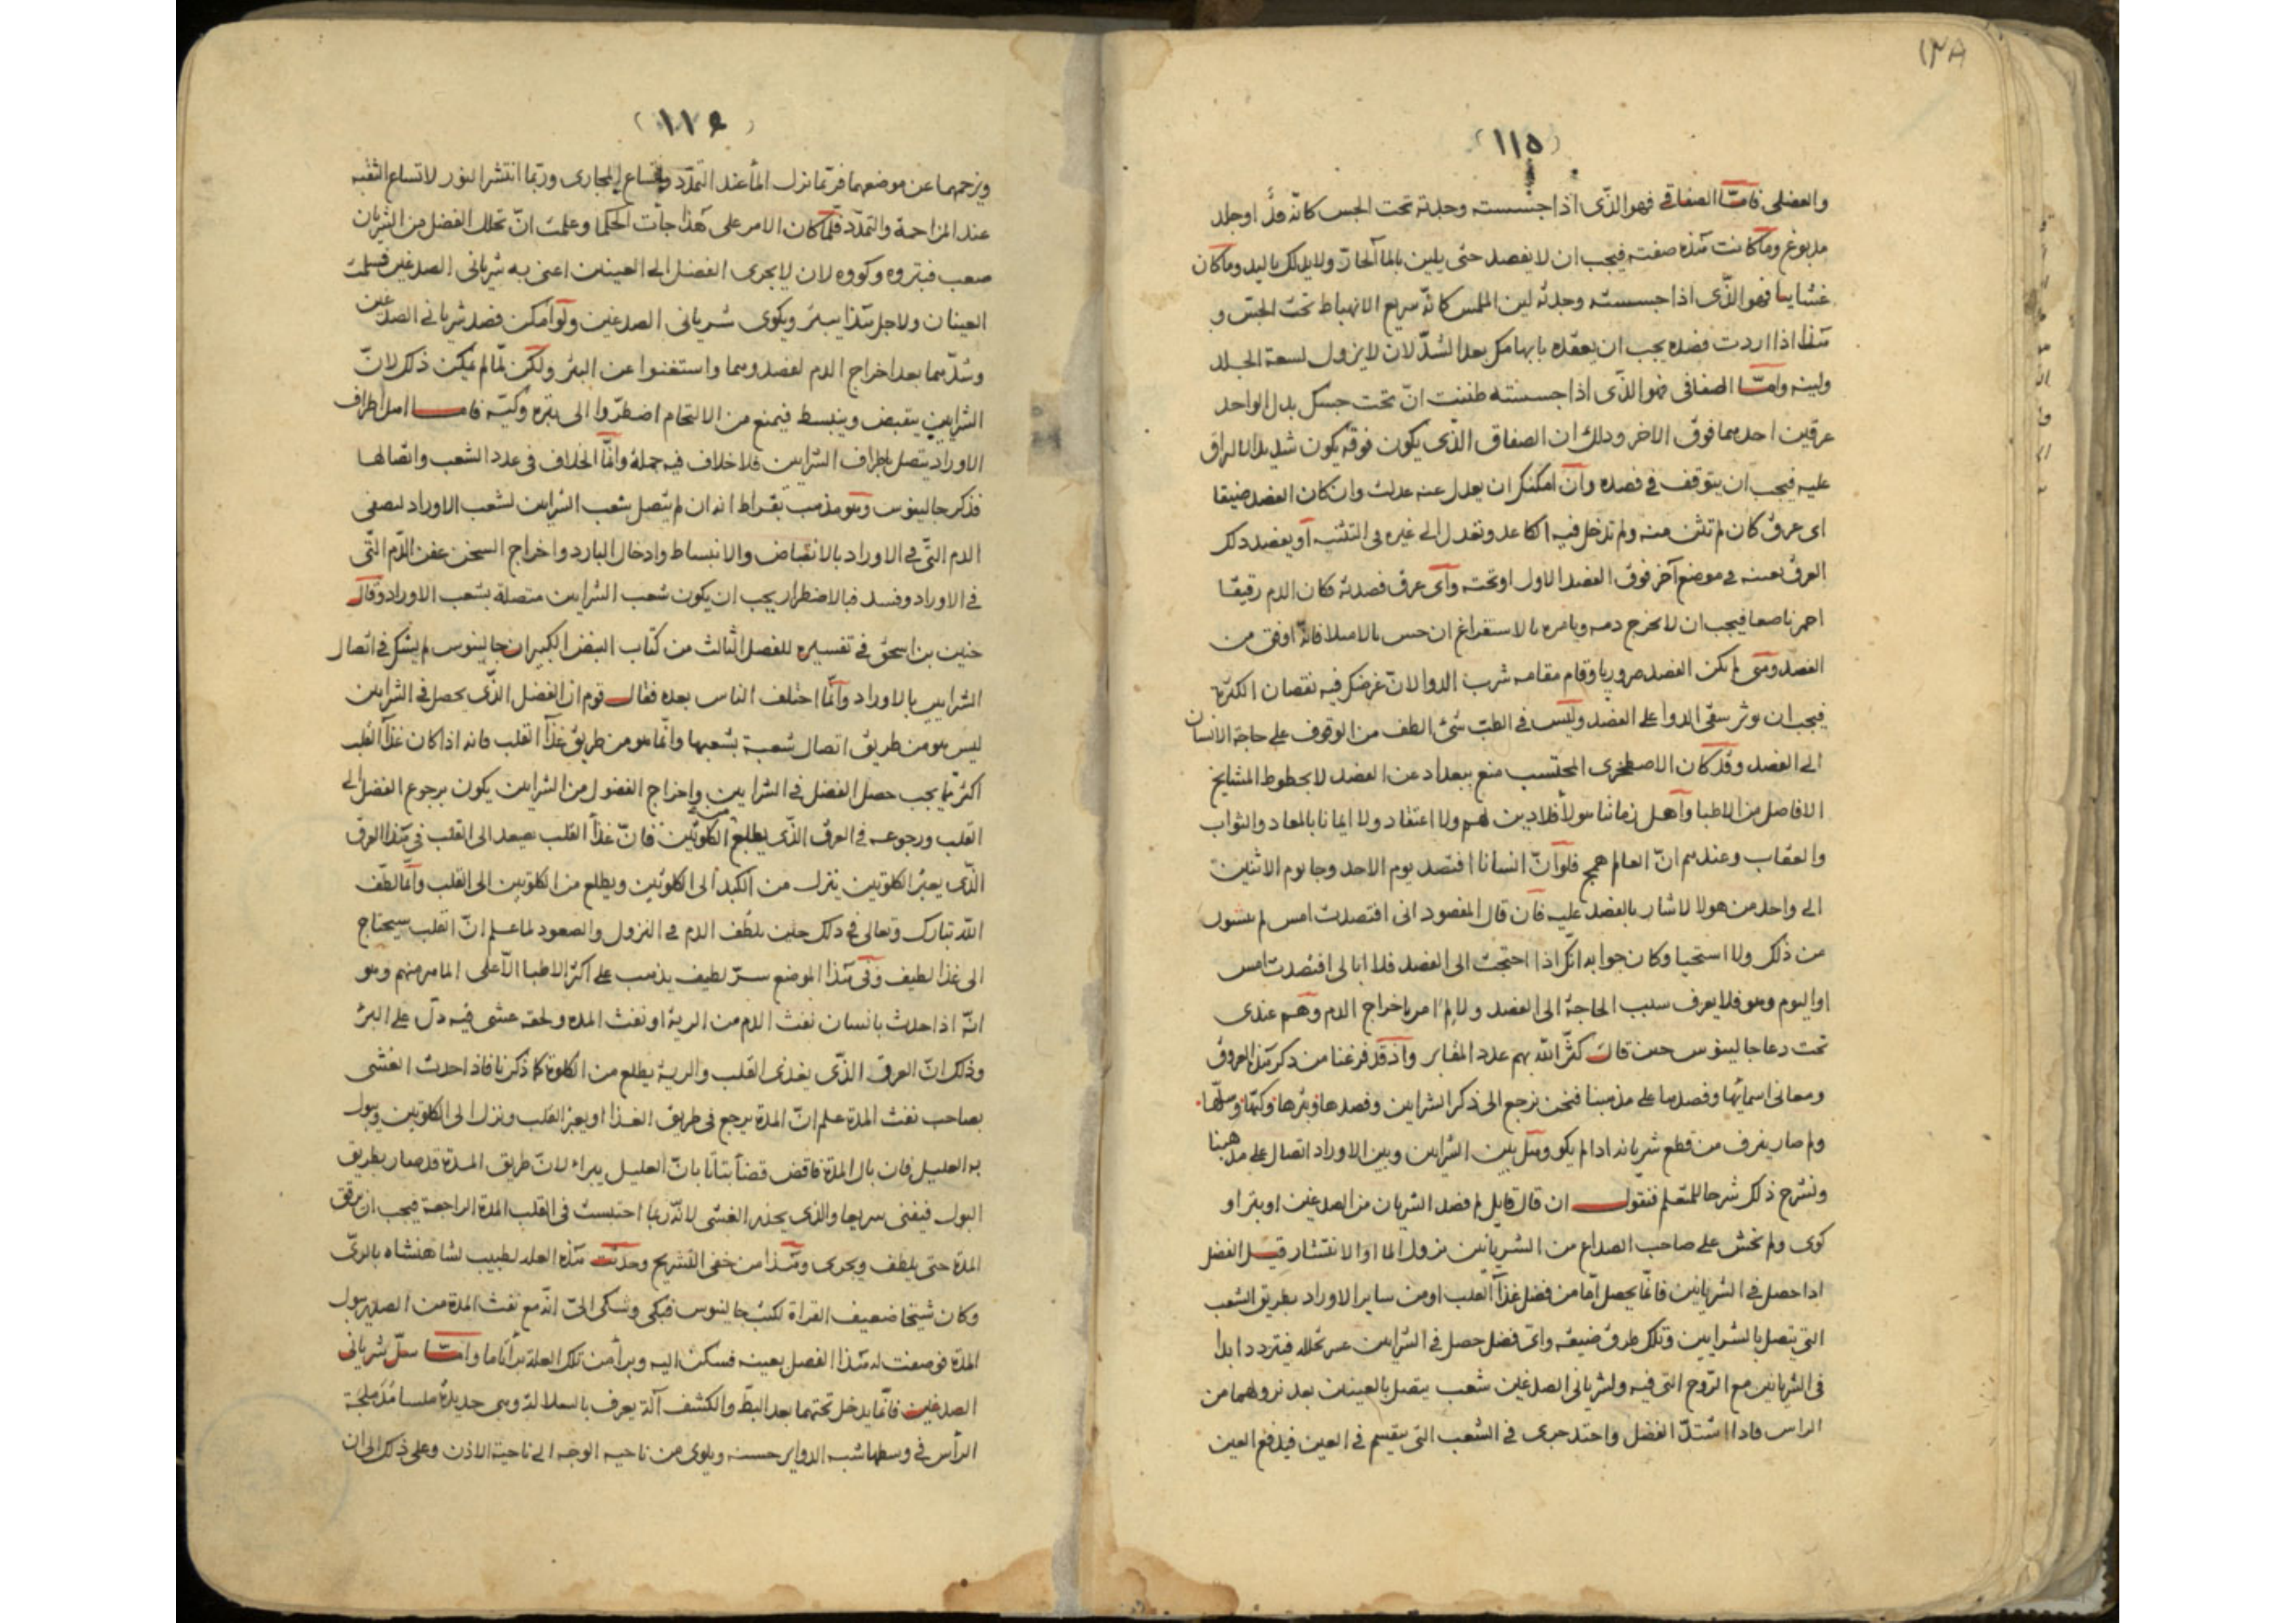 ١٣٨
(١١٥)
والعضلى فامّا الصفاقى فهو الذّى اذا جسسته وجدته تحت الجس كانه قدّ او جلد
مدبوغ وما كانت هذه صفته فيجب ان لا يفصد حتى يلين بالماء الحارّ ولا يدلك باليد وما كان
غشاييا فهو الذّى اذا جسسته وجدته لين الملمس كانّه سريع الانهباط تحت الجسّ و
هذا اذا اردت فصده يجب ان يعقده بابهامك بعد الشدّ لان لا يزول لسعة الجلد
ولينه وامّا الصفاقى فهو الذّى اذا جسسته ظننت انّ تحت جسك بدل الواحد
عرقين احدهما فوق الاخر وذلك ان الصفاق الذّى يكون فوقه يكون شديد الالزاق
عليه فيجب ان يتوقف فى فصده وان امكنك ان يعدل عنه عدلت وان كان الفصد ضيقا
اى عرق كان لم تثن منه ولم تدخل فيه الكاعد وتعدل الى غيره فى التثنيه او يفصد ذلك
العرق بعينه فى موضع آخر فوق الفصد الاول او تحته واى عرق فصدته فكان الدم رقيقا
احمر ناصعا فيجب ان لا تخرج دمه ويامره بالاستفراغ ان حس بالامتلا فانّه اوفق من
الفصد ومتى لم يكن الفصد ضروريا وقام مقامه شرب الدوا لانّ غرضك فيه نقصان الكثرة
فيجب ان يوثر سقى الدوا على الفصد وليس فى الطبّ شئ الطف من الوقوف على حاجة الانسان
الى الفصد وقد كان الاصطخرى المحتسب منع ببغداد عن الفصد لا بخطوط المشايخ
الافاضل من الاطبا واهل زماننا هولاء فلا دين لهم ولا اعتقاد ولا ايمانا بالمعاد والثواب
والعقاب وعندهم انّ العالم همج فلو انّ انسانا افتصد يوم الاحد وجا يوم الاثنين
الى واحد من هولا لاشار بالفصد عليه فان قال المفصود انى افتصدت امس لم
من ذلك ولا استحيا وكان جوابه انّك اذا احتجت الى الفصد فلا ابالى افتصدت امس
او اليوم وهو فلا يعرف سبب الحاجة الى الفصد ولا لِمَ امر باخراج الدم وهم عندى
تحت دعا جالينوس حين قال كثّر الله بهم عدد المقابر واذ قد فرغنا من ذكر هذه العروق
ومعانى اسمايها وفصدها على مذهبنا فنحن نرجع الى ذكر الشرايين وفصدها وبترها وكيّها وسلّها
ولم صار ينزف من قطع شريانه اذا لم يكو وهل بين الشرايين وبين الاوراد اتصال على مذهبنا
ونشرح ذلك شرحا للمتعلم فنقول ان قال قايل لم فصد الشريان من الصدغين او بتر او
كوى ولم تخش على صاحب الصداع من الشريانين نزول الما او الانتشار قيل الفضل
اذا حصل فى الشريانين فانّما يحصل امّا من فضل غذاء القلب او من ساير الاوراد بطريق الشعب
التى يتصل بالشرايين وتلك طرق ضيقه واىّ فضل حصل فى الشرايين عسر تحلله فيتردد ابدا
فى الشريانين مع الرّوح التى فيه ولشريانى الصدغين شعب يتصل بالعينين بعد نزولهما من
الراس فاذا اشتدّ الفضل واحتد جرى فى الشعب التى ينقسم فى العين فيدفع العين
(١١٦)
ويزحمهما عن موضعهما فربّما نزل الماء عند التمدّد واتساع المجارى وربّما انتشر النور لاتساع الثقبه
عند المزاحمة والتمدّد فلمّا كان الامر على هذا جات الحكما وعلمت انّ تحلل الفضل من الشريان
صعب فبتروه وكووه لان لا يجرى الفضل الى العينين اعنى به شريانى الصدغين فسلمت
العينان ولاجل هذا يبتر ويكوى شريانى الصدغين ولو امكن فصد شريانى الصدغين
وشدّهما بعد اخراج الدم لفصدوهما واستغنوا عن البتر ولكن لمّا لم يمكن ذلك لانّ
الشرايين ينقبض وينبسط فيمنع من الالتحام اضطرّوا الى بتره وكيّه فاما اصل اطراف
الاوراد يتصل باطراف الشرايين فلا خلاف فيه جملة وانّما الخلاف فى عدد الشعب واتصالها
فذكر جالينوس وهو مذهب بقراط انه ان لم يتصل شعب الشرايين لشعب الاوراد لصفى
الدم التّى فى الاوراد بالانقباض والانبساط وادخال البارد واخراج السخن عفن الدّم التّى
فى الاوراد وفسد فبالاضطرار يجب ان يكون شعب الشرايين متصلة بشعب الاوراد وقال
حنين بن اسحق فى تفسيره للفصل الثالث من كتاب النبض الكبير ان جالينوس لم يشك فى اتصال
الشرايين بالاوراد وانّما اختلف الناس بعده فقال قوم ان الفضل الذّى يحصل فى الشرايين
ليس هو من طريق اتصال شعبة بشعبها وانّما هو من طريق غذاء القلب فانه اذا كان غذاء القلب
اكثر ممّا يجب حصل الفضل فى الشرايين واخراج الفضول من الشرايين يكون برجوع الفضل الى
القلب ورجوعه فى العرق الذّى يطلع من الكلوتين فانّ غذاء القلب يصعد الى القلب فى هذا العرق
الذّى يعبر الكلوتين ينزل من الكبد الى الكلوتين ويطلع من الكلوتين الى القلب وانّما لطّف
الله تبارك وتعالى فى ذلك حين يلطّف الدم فى النزول والصعود لما علم انّ القلب سيحتاج
الى غذا لطيف وفى هذا الموضع سرّ لطيف يذهب على اكثر الاطبا الّا على الماهر منهم وهو
انّه اذا حدث بانسان نفث الدم من الرية او نفث المده ولحقه غشى فيه دلّ على البرْ
وذلك انّ العرق الذّى يغذى القلب والرية يطلع من الكلوة كما ذكرنا فاذا حدث الغشى
بصاحب نفث المدة علم انّ المدة يرجع فى طريق الغذا او يعبر القلب ونزل الى الكلوتين ويبول
به العليل فان بال المدة فاقض قضاءً بتاتا بانّ العليل يبراء لانّ طريق المدة قد صار بطريق
البول فيفنى سريعا والذى يحذر الغشى لانّه ربّما احتبست فى القلب المدة الراجعة فيجب ان يرقق
المدة حتى يلطف ويجرى وهذا من خفى التشريح وحدثت هذه العله لطبيب لشاهنشاه بالرىّ
وكان شيخا ضعيف القراة لكتب جالينوس فبكى وشكى الىّ انّه مع نفث المدة من الصدر يبول
المدة فوصفت له هذا الفصل بعينه فسكن اليه وبرا من تلك العلة براً تاما وامّا سلّ شريانى
الصدغين فانّما يدخل تحتهما بعد البطّ والكشف آلة يعرف بالسلالة وهى حديدة ملسا
الرأس فى وسطها شبه الدواير حسنه ويلوى من ناحيه الوجه الى ناحية الاذن وعلى ذلك الى ان